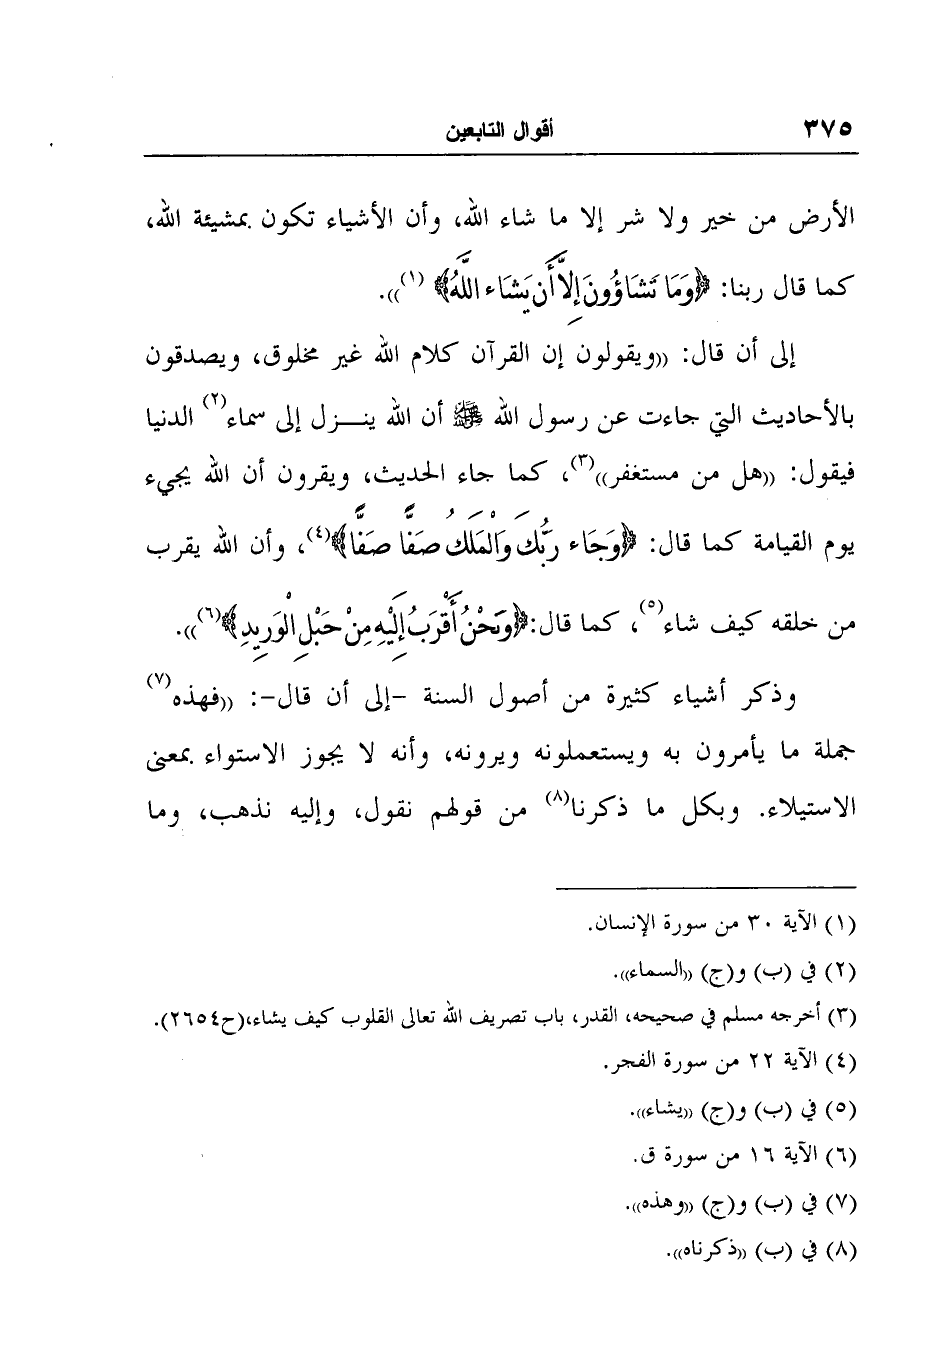 ٣٧٥ أقوال التابعين
الأرض من خير ولا شر إلا ما شاء الله، وأن الأشياء تكون بمشيئة الله،
كما قال ربنا: ﴿وَمَا تَشَاؤُونَ إِلاَّ أَن يَشَاء اللَّهُ﴾ (١)».
إلى أن قال: «ويقولون إن القرآن كلام الله غير مخلوق، ويصدقون
بالأحاديث التي جاءت عن رسول الله ﷺ أن الله ينـــزل إلى سماء(٢) الدنيا
فيقول: «هل من مستغفر»(٣)، كما جاء الحديث، ويقرون أن الله يجيء
يوم القيامة كما قال: ﴿وَجَاء رَبُّكَ وَالْمَلَكُ صَفًّا صَفًّا﴾(٤)، وأن الله يقرب
من خلقه كيف شاء(٥)، كما قال:﴿وَنَحْنُ أَقْرَبُ إِلَيْهِ مِنْ حَبْلِ الْوَرِيدِ﴾(٦)».
وذكر أشياء كثيرة من أصول السنة -إلى أن قال-: «فهذه(٧)
جملة ما يأمرون به ويستعملونه ويرونه، وأنه لا يجوز الاستواء بمعنى
الاستيلاء. وبكل ما ذكرنا(٨) من قولهم نقول، وإليه نذهب، وما
(١) الآية ٣٠ من سورة الإنسان.
(٢) في (ب) و(ج) «السماء».
(٣) أخرجه مسلم في صحيحه، القدر، باب تصريف الله تعالى القلوب كيف يشاء،(ح٢٦٥٤).
(٤) الآية ٢٢ من سورة الفجر.
(٥) في (ب) و(ج) «يشاء».
(٦) الآية ١٦ من سورة ق.
(٧) في (ب) و(ج) «وهذه».
(٨) في (ب) «ذكرناه».